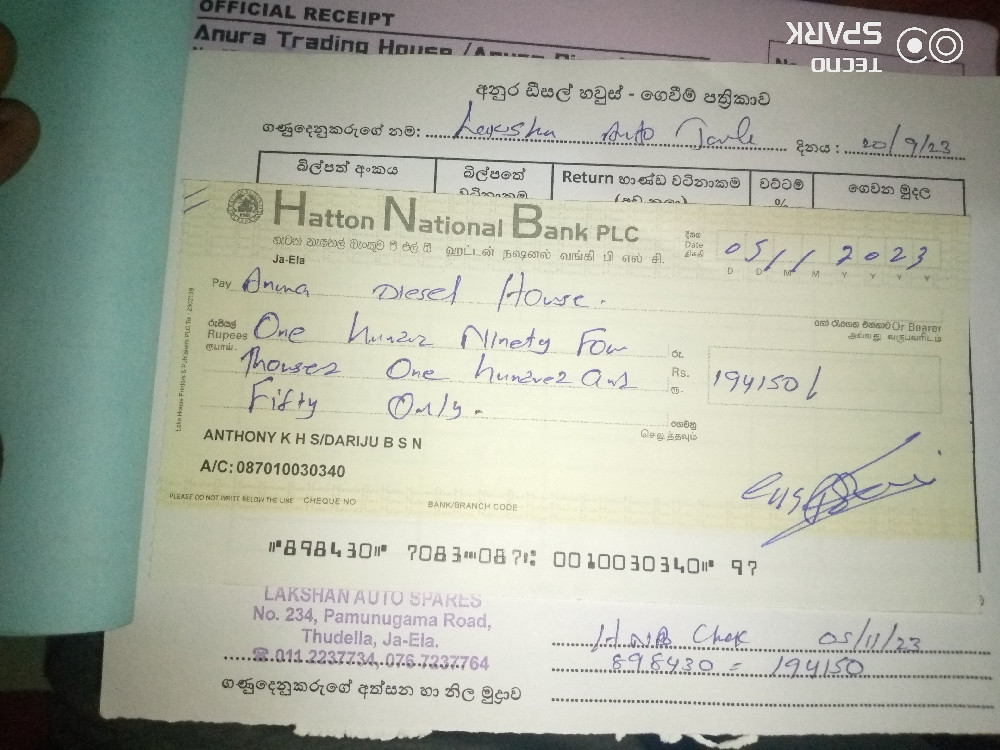 OFFICIAL RECEIPT
Anura Trading House /Anura
No
TECNO
SPARK
අනුර ඩීසල් හවුස් - ගෙවීම් පත්‍රිකාව
ගණුදෙනුකරුගේ නම: Auto
දිනය: 20/9/23
බිල්පත් අංකය
බිල්පතේ
Return භාණ්ඩ වටිනාකම
වට්ටම %
ගෙවන මුදල
Hatton National Bank PLC
හැටන් නැෂනල් බෑන්කුව පී එල් සී ஹட்டன் நஷனல் வங்கி பி எல் சி.
Ja-Ela
දිනය
Date
திகதி
05/11 2023
D D M M Y Y Y Y
Pay Anura Diesel House.
හෝ රැගෙන එන්නාට Or Bearer
அல்லது வருபவரிடம்
රුපියල්
Rupees
ரூபாய்.
One hunzez Ninety Fow
Thousez One hunzrez and
Fifty Only.
රු.
Rs.
ரூ.
194150/
ගෙවනු
செலுத்தவும்
ANTHONY K H S/DARIJU B S N
A/C: 087010030340
PLEASE DO NOT WRITE BELOW THE LINE CHEQUE NO BANK/BRANCH CODE
⑈898430⑈ 7083⑉087⑆ 0010030340⑈ 97
LAKSHAN AUTO SPARES
No. 234, Pamunugama Road,
Thudella, Ja-Ela.
☎ 011 2237734, 076 7237764
HNB Chek 05/11/23
898430 = 194150
ගණුදෙනුකරුගේ අත්සන හා නිල මුද්‍රාව